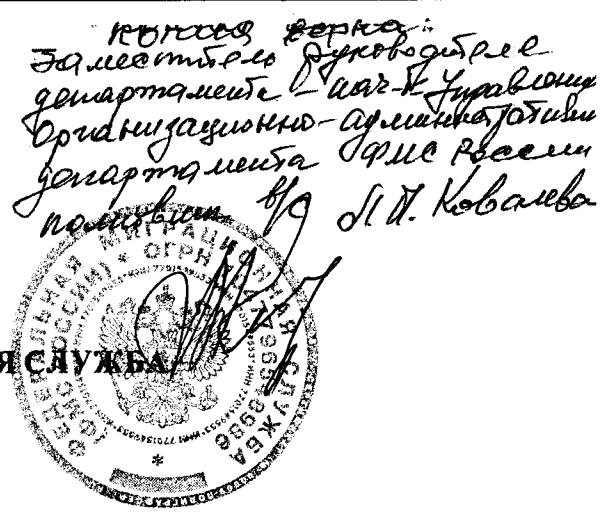 копия верна:
Заместитель руководителя
департамента – нач-к Управления
организационно-административн
департамента ФМС России
полковник в/с Л.П. Ковалева
ФЕДЕРАЛЬНАЯ МИГРАЦИОННАЯ СЛУЖБА
(ФМС РОССИИ) * ОГРН
Я СЛУЖБА